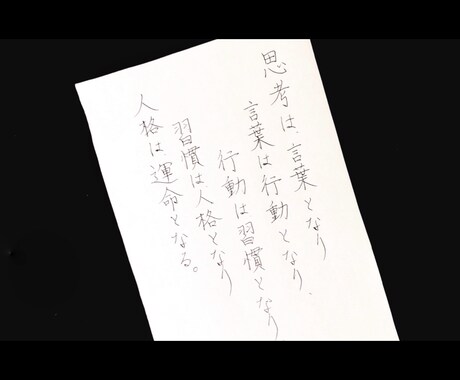 思考は、言葉となり
言葉は行動となり、
行動は習慣となり
習慣は人格となり
人格は運命となる。